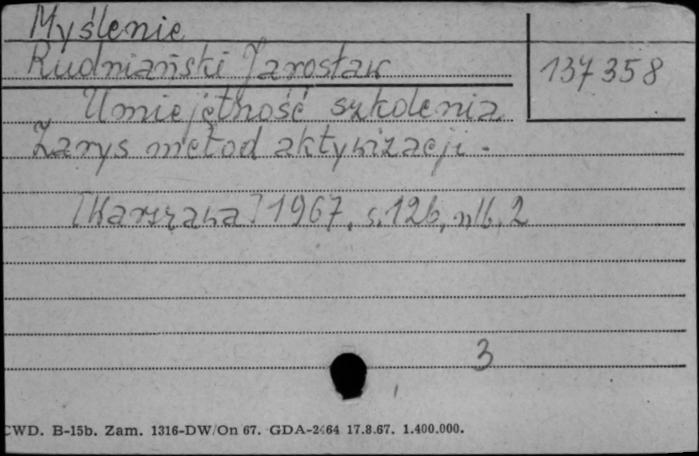 Myślenie
Rudniański Jarosław
137358
Umiejętność szkolenia
Zarys metod aktywizacji.
[Warszawa] 1967, s. 126, nlb. 2
3
CWD. B-15b. Zam. 1316-DW/On 67. GDA-2464 17.8.67. 1.400.000.